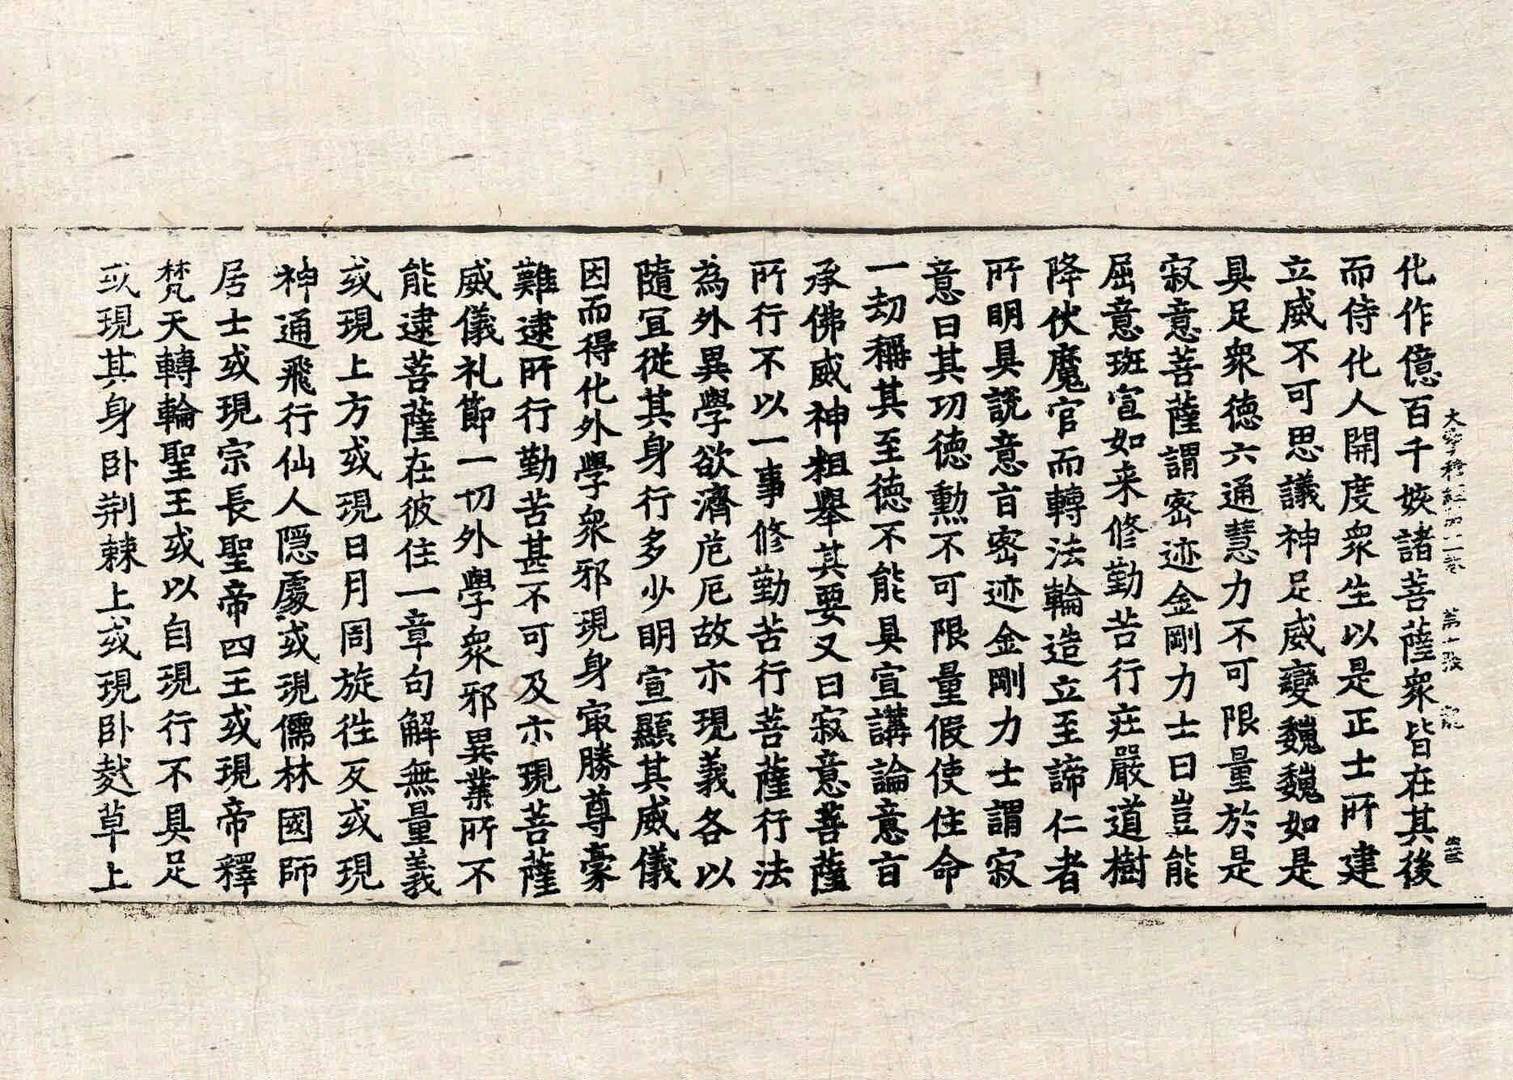 大寶積經第十二卷 第十張 龍
化作億百千姟諸菩薩眾皆在其後
而侍化人開度眾生以是正士所建
立威不可思議神足威變巍巍如是
具足眾德六通慧力不可限量於是
寂意菩薩謂密迹金剛力士曰豈能
屈意班宣如来修勤苦行莊嚴道樹
降伏魔官而轉法輪造立至諦仁者
所明具說意旨密迹金剛力士謂寂
意曰其功德勳不可限量假使住命
一劫稱其至德不能具宣講論意旨
承佛威神粗舉其要又曰寂意菩薩
所行不以一事修勤苦行菩薩行法
為外異學欲濟危厄故亦現義各以
隨冝從其身行多少明宣顯其威儀
因而得化外學眾邪現身㝡勝尊豪
難逮所行勤苦甚不可及亦現菩薩
威儀礼節一切外學眾邪異業所不
能逮菩薩在彼住一章句解無量義
或現上方或現日月周旋往反或現
神通飛行仙人隱處或現儒林國師
居士或現宗長聖帝四王或現帝釋
梵天轉輪聖王或以自現行不具足
或現其身卧荊棘上或現卧𦱤草上